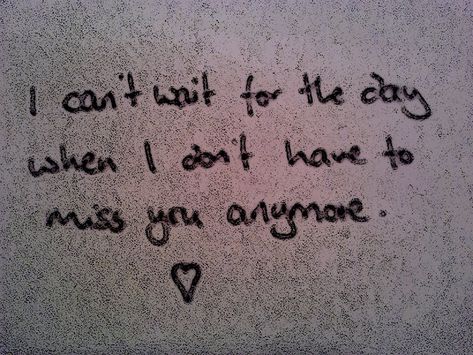 I can't wait for the day
when I don't have to
miss you anymore.
♡